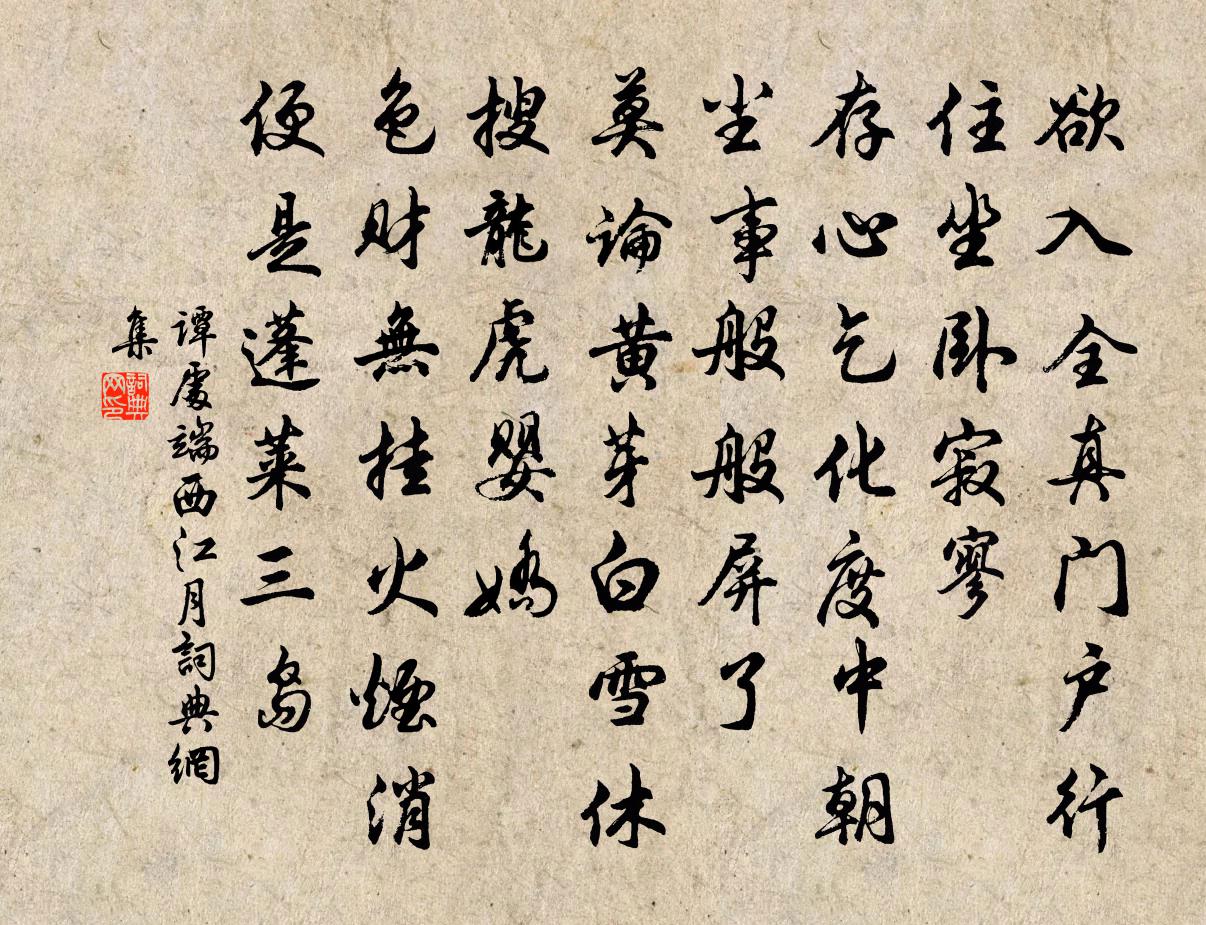 欲入全真门户行
住坐卧寂寥
存心乞化度中朝
尘事般般屏了
莫論黄芽白雪休
搜龍虎婴娇
色财無挂火煙消
便是蓬莱三岛
谭處端西江月詞典網
集
詞典
网印